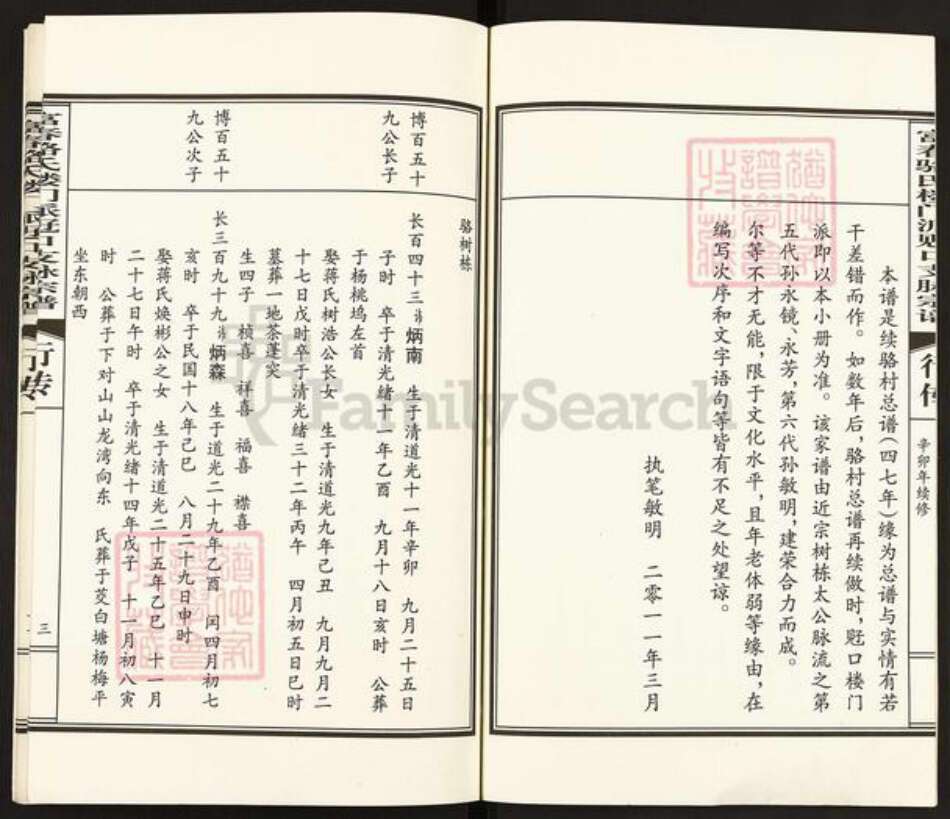 行传
辛卯年续修
本谱是续骆村总谱(四七年)缘为总谱与实情有若
干差错而作。如数年后,骆村总谱再续做时,贬口楼门
派即以本小册为准。该家谱由近宗树栋太公脉流之第
五代孙永镜、永芳,第六代孙敏明,建荣合力而成。
尔等不才无能,限于文化水平,且年老体弱等缘由,在
编写次序和文字语句等皆有不足之处望谅。
执笔敏明 二零一一年三月
骆树栋
博百五十
九公长子
长百四十三讳炳南 生于清道光十一年辛卯 九月二十五日
子时 卒于清光绪十一年乙酉 九月十八日亥时 公葬
于杨桃坞左首
娶蒋氏树浩公长女 生于清道光九年己丑 九月九月二
十七日戌时卒于清光绪三十二年丙午 四月初五日巳时
墓葬一地茶蓬实
生四子 桢喜 祥喜 福喜 襟喜
博百五十
九公次子
长三百九十九讳炳森 生于道光二十九年乙酉 闰四月初七
亥时 卒于民国十八年己巳 八月二十九日申时
娶蒋氏焕彬公之女 生于清道光二十五年乙巳 十一月
二十七日午时 卒于清光绪十四年戊子 十一月初八寅
时 公葬于下对山山龙湾向东 氏葬于茭白塘杨梅平
坐东朝西
三
FamilySearch